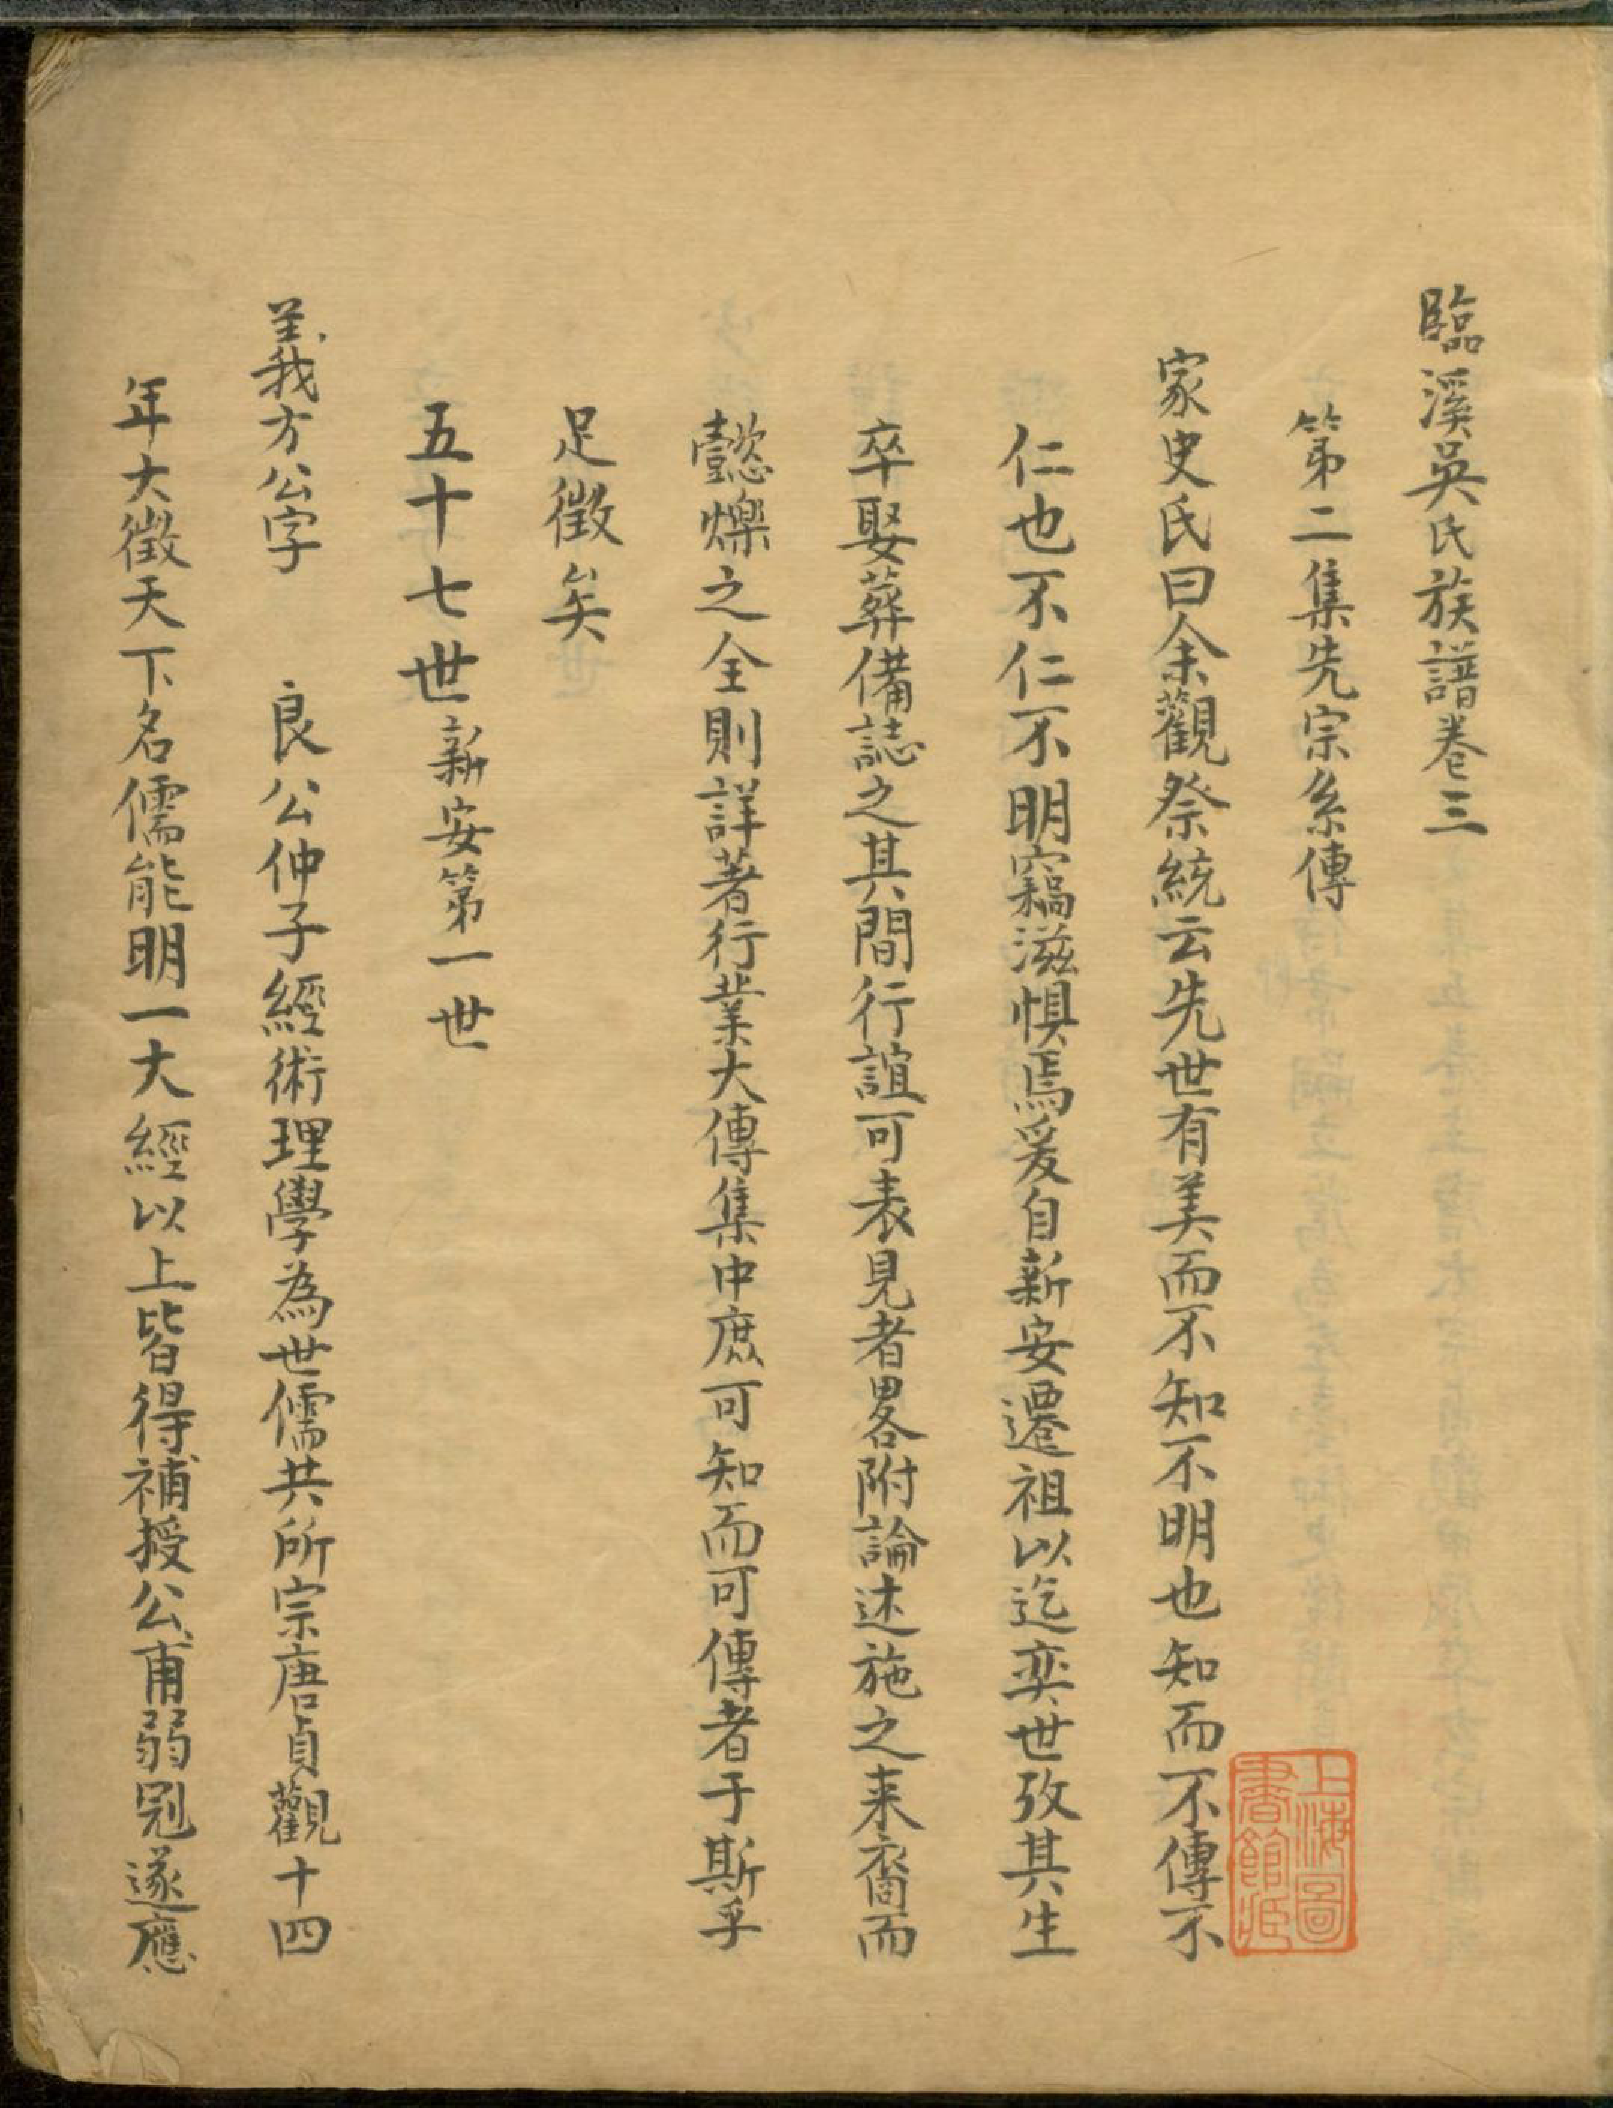 臨溪吳氏族譜卷三
第二集先宗系傳
家史氏曰余觀祭統云先世有美而不知不明也知而不傳不
仁也不仁不明竊滋惧焉爰自新安遷祖以迄奕世攷其生
卒娶葬備誌之其間行誼可表見者畧附論述施之来裔而
懿爍之全則詳著行業大傳集中庶可知而可傳者于斯乎
足徵矣
五十七世新安第一世
義方公字 良公仲子經術理學為世儒共所宗唐貞觀十四
年大徵天下名儒能明一大經以上皆得補授公甫弱冠遂應
上海圖書館藏